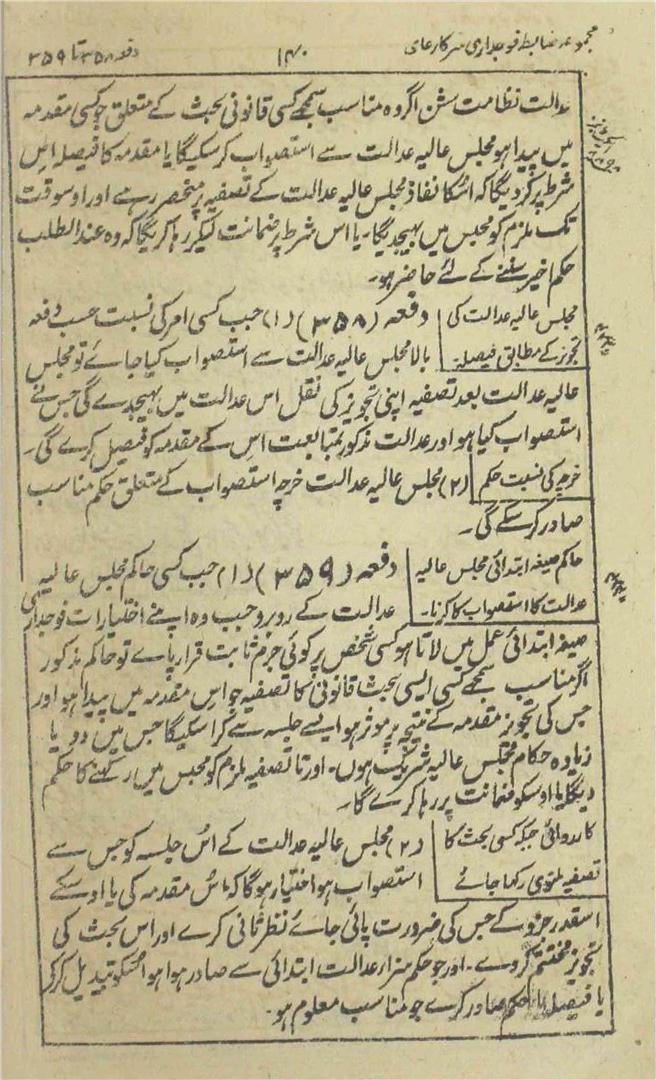 مجموعہ ضابطہ فوجداری سرکار عالی ۱۴۰ دفعہ ۳۵۸ تا ۳۵۹
عدالت نظامت سشن اگر وہ مناسب سمجھے کسی قانونی بحث کے متعلق جو کسی مقدمہ
میں پیدا ہو مجلس عالیہ عدالت سے استصواب کرسکیگا یا مقدمہ کا فیصلہ اس
شرط پر کر دیگا کہ اسکا نفاذ مجلس عالیہ عدالت کے تصفیہ پر منحصر رہے اور اوسوقت
تک ملزم کو محبس میں بھیجدیگا۔ یا اس شرط پر ضمانت لیکر رہا کریگا کہ وہ عندالطلب
حکم اخیر سننے کے لئے حاضر ہو۔
مجلس عالیہ عدالت کی
تجویز کے مطابق فیصلہ
دفعہ (۳۵۸) (۱) جب کسی امر کی نسبت حسب دفعہ
بالا مجلس عالیہ عدالت سے استصواب کیا جائے تو مجلس
عالیہ عدالت بعد تصفیہ اپنی تجویز کی نقل اس عدالت میں بھیجدے گی جس نے
استصواب کیا ہو اور عدالت مذکور بمتابعت اس کے مقدمہ کو فیصل کرے گی۔
خرچہ کی نسبت حکم
(۲) مجلس عالیہ عدالت خرچہ استصواب کے متعلق حکم مناسب
صادر کرسکے گی۔
حاکم صیغہ ابتدائی مجلس عالیہ
عدالت کا استصواب کا کرنا۔
دفعہ (۳۵۹) (۱) جب کسی حاکم مجلس عالیہ
عدالت کے روبرو جب وہ اپنے اختیارات فوجداری
صیغہ ابتدائی عمل میں لاتا ہو کسی شخص پر کوئی جرم ثابت قرار پاے تو حاکم مذکور
اگر مناسب سمجھے کسی ایسی بحث قانونی کا تصفیہ جو اس مقدمہ میں پیدا ہو اور
جس کی تجویز مقدمہ کے نتیجہ پر موثر ہو ایسے جلسہ سے کرا سکیگا جس میں دو یا
زیادہ حکام مجلس عالیہ شریک ہوں۔ اور تا تصفیہ ملزم کو محبس میں رکھنے کا حکم
دیگا یا اوسکو ضمانت پر رہا کرے گا۔
کارروائی جبکہ کسی بحث کا
تصفیہ ملتوی رکھا جائے
(۲) مجلس عالیہ عدالت کے اُس جلسہ کو جس سے
استصواب ہو اختیار ہو گا کہ اس مقدمہ کی یا اوسکے
اسقدر جزو کے جس کی ضرورت پائی جاے نظر ثانی کرے اور اس بحث کی
تجویز مختتم کردے۔ اور جو حکم سزا عدالت ابتدائی سے صادر ہوا ہو اُسکو تبدیل کرکے
یا فیصلہ یا حکم صادر کرے جو مناسب معلوم ہو۔